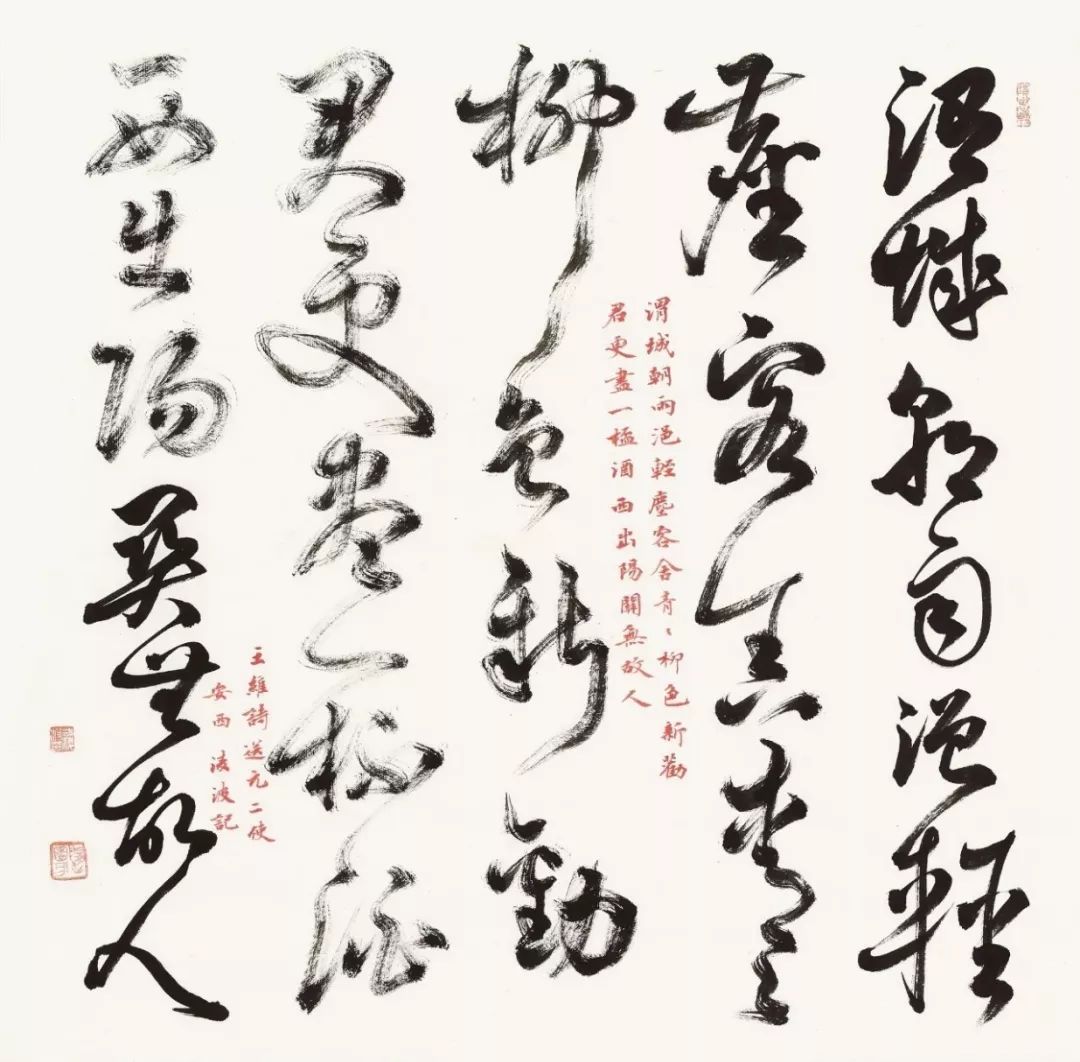 渭城朝雨浥輕
塵客舍青〻
柳色新勸
君更盡一杯酒
西出陽關無故人
渭城朝雨浥輕塵客舍青〻柳色新勸
君更盡一桮酒西出陽關無故人
王維詩送元二使
安西 淩波記